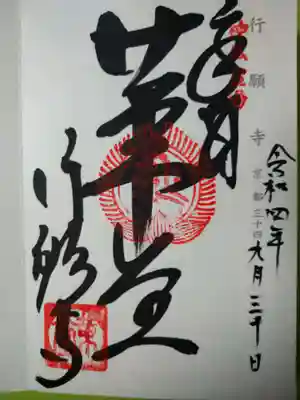 奉拝
行願寺
京都三十四
令和四年
九月三十日
革堂
行願寺